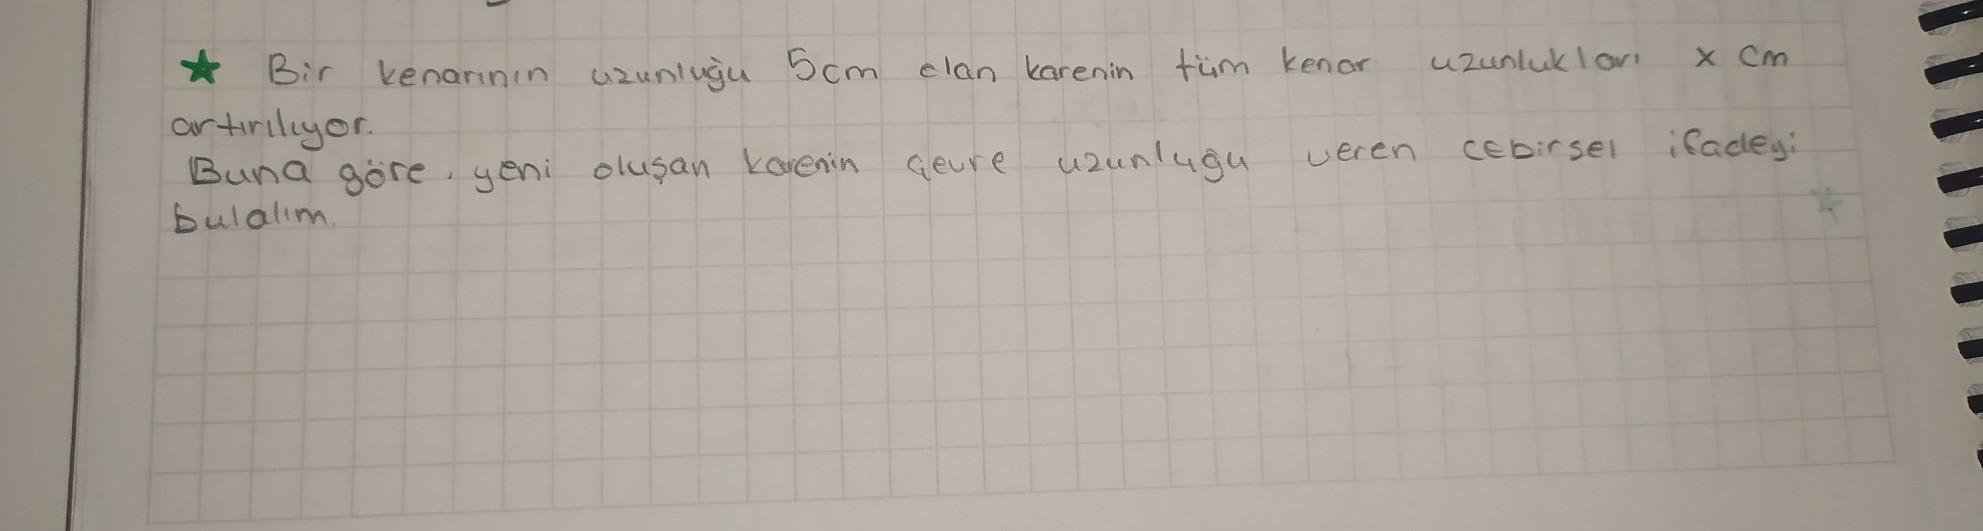 ★ Bir kenarının uzunluğu 5cm olan karenin tüm kenar uzunlukları x cm
artırılıyor.
Buna göre, yeni oluşan karenin çevre uzunlugu veren cebirsel ifadeyi
bulalım.